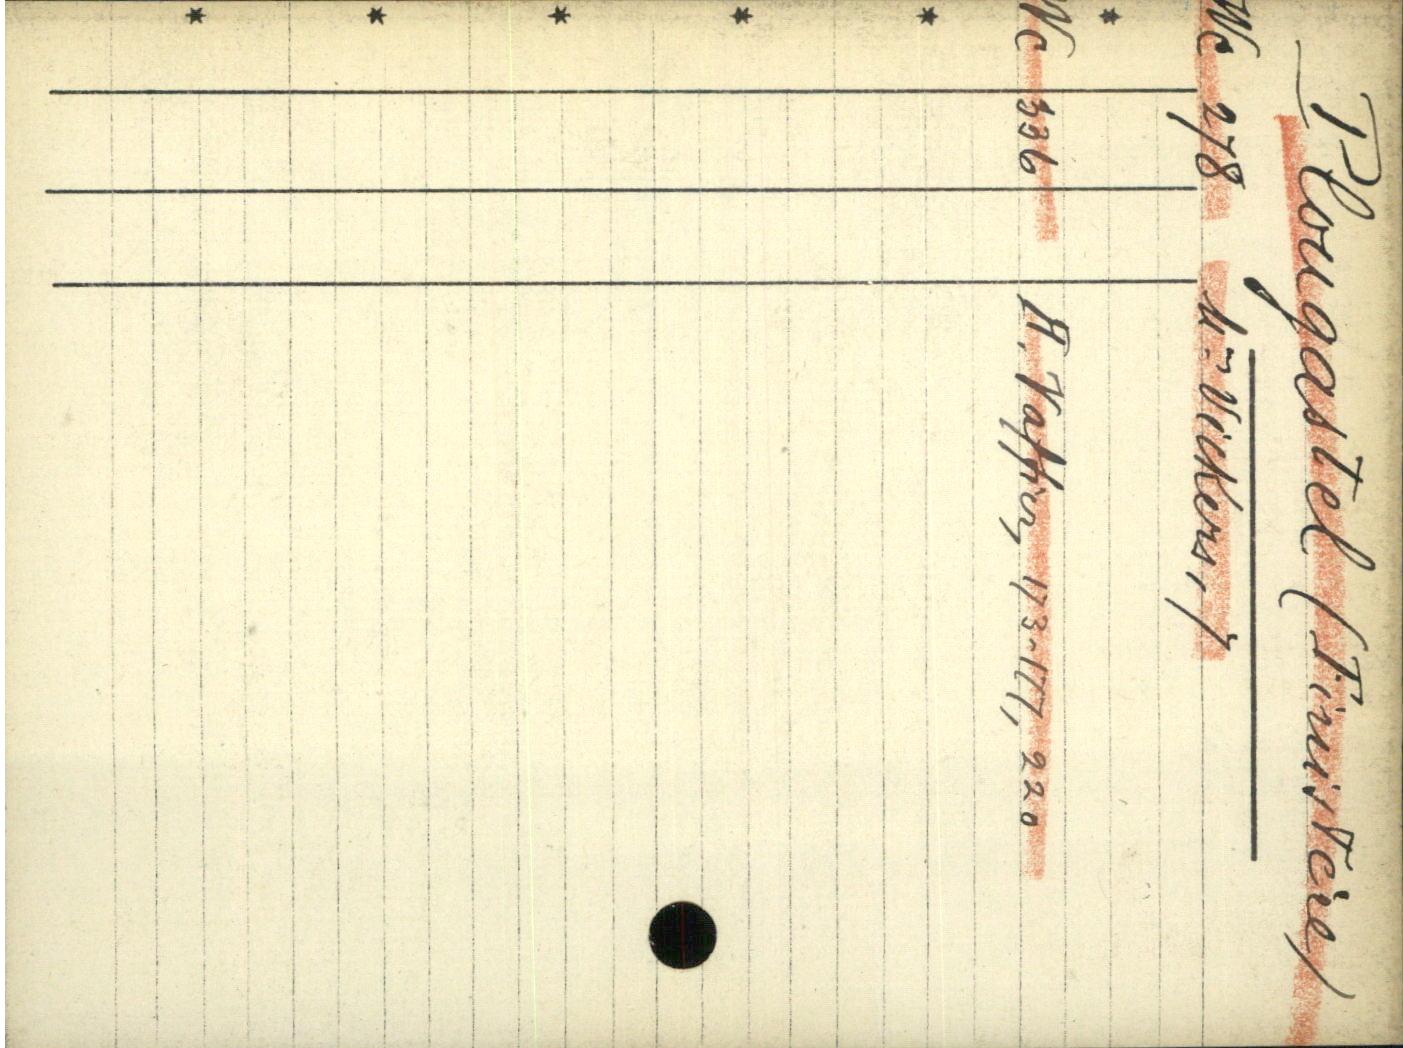 Plougastel (Finistère)
Wc 278 Mme Vickers, 7
*
Vc 336 H. Vaffier, 173-177, 220
*
*
*
*
*